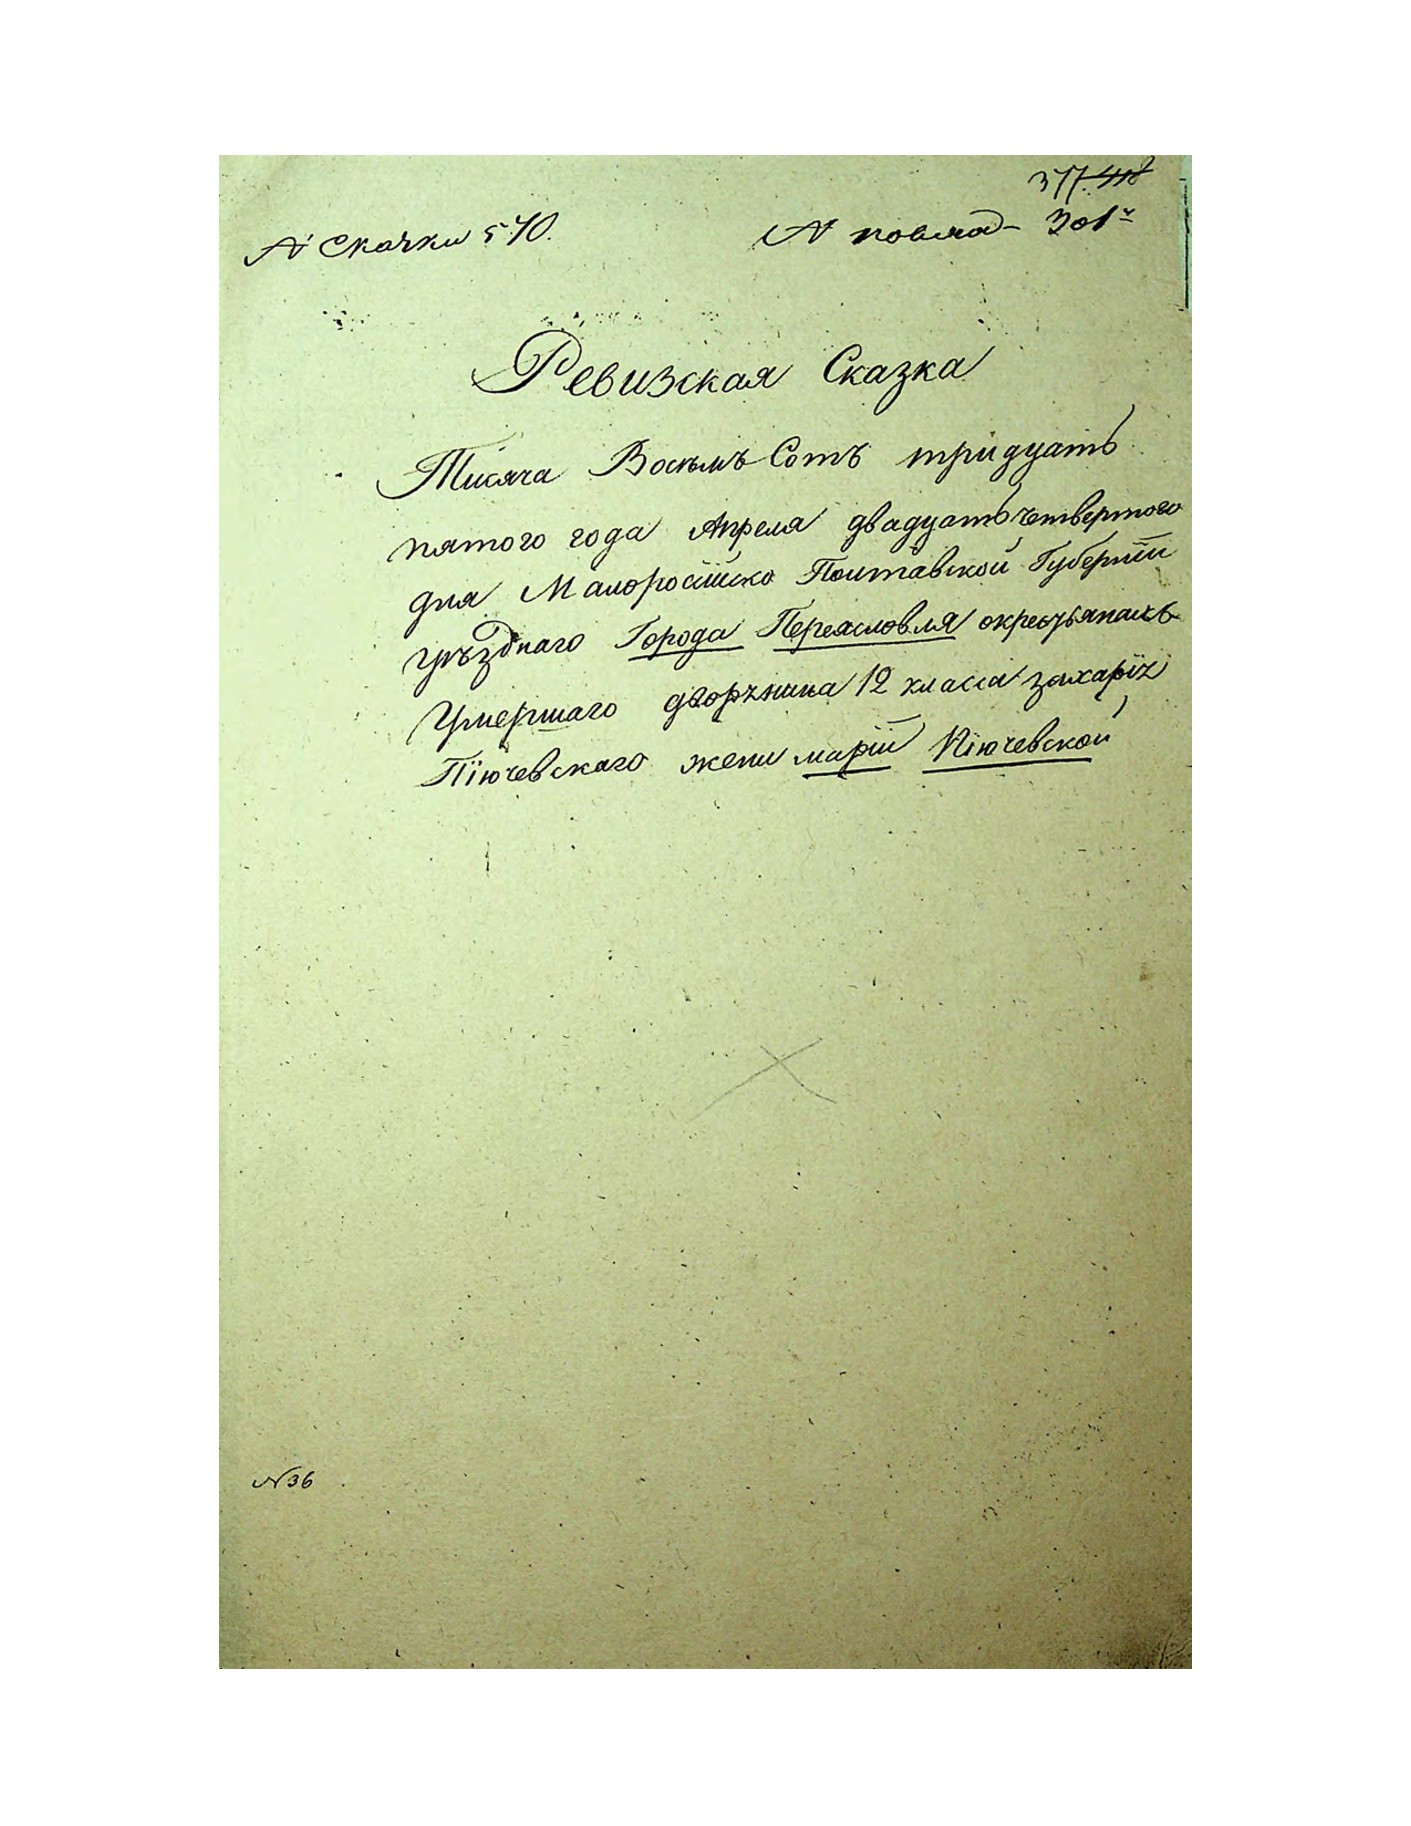 377.
№ Скачки 570.
№ 301
Ревизская Сказка
Тисяча Восьмъ Сотъ тридцать
пятого года Апреля двадцать четвертого
дня Малоросїйско Полтавской Губернїи
уѣзднаго Города Переясловля окрестьянахъ
Умершаго дворянина 12 класса захарїя
Пїючевскаго жени марїи Пїючевской
№36